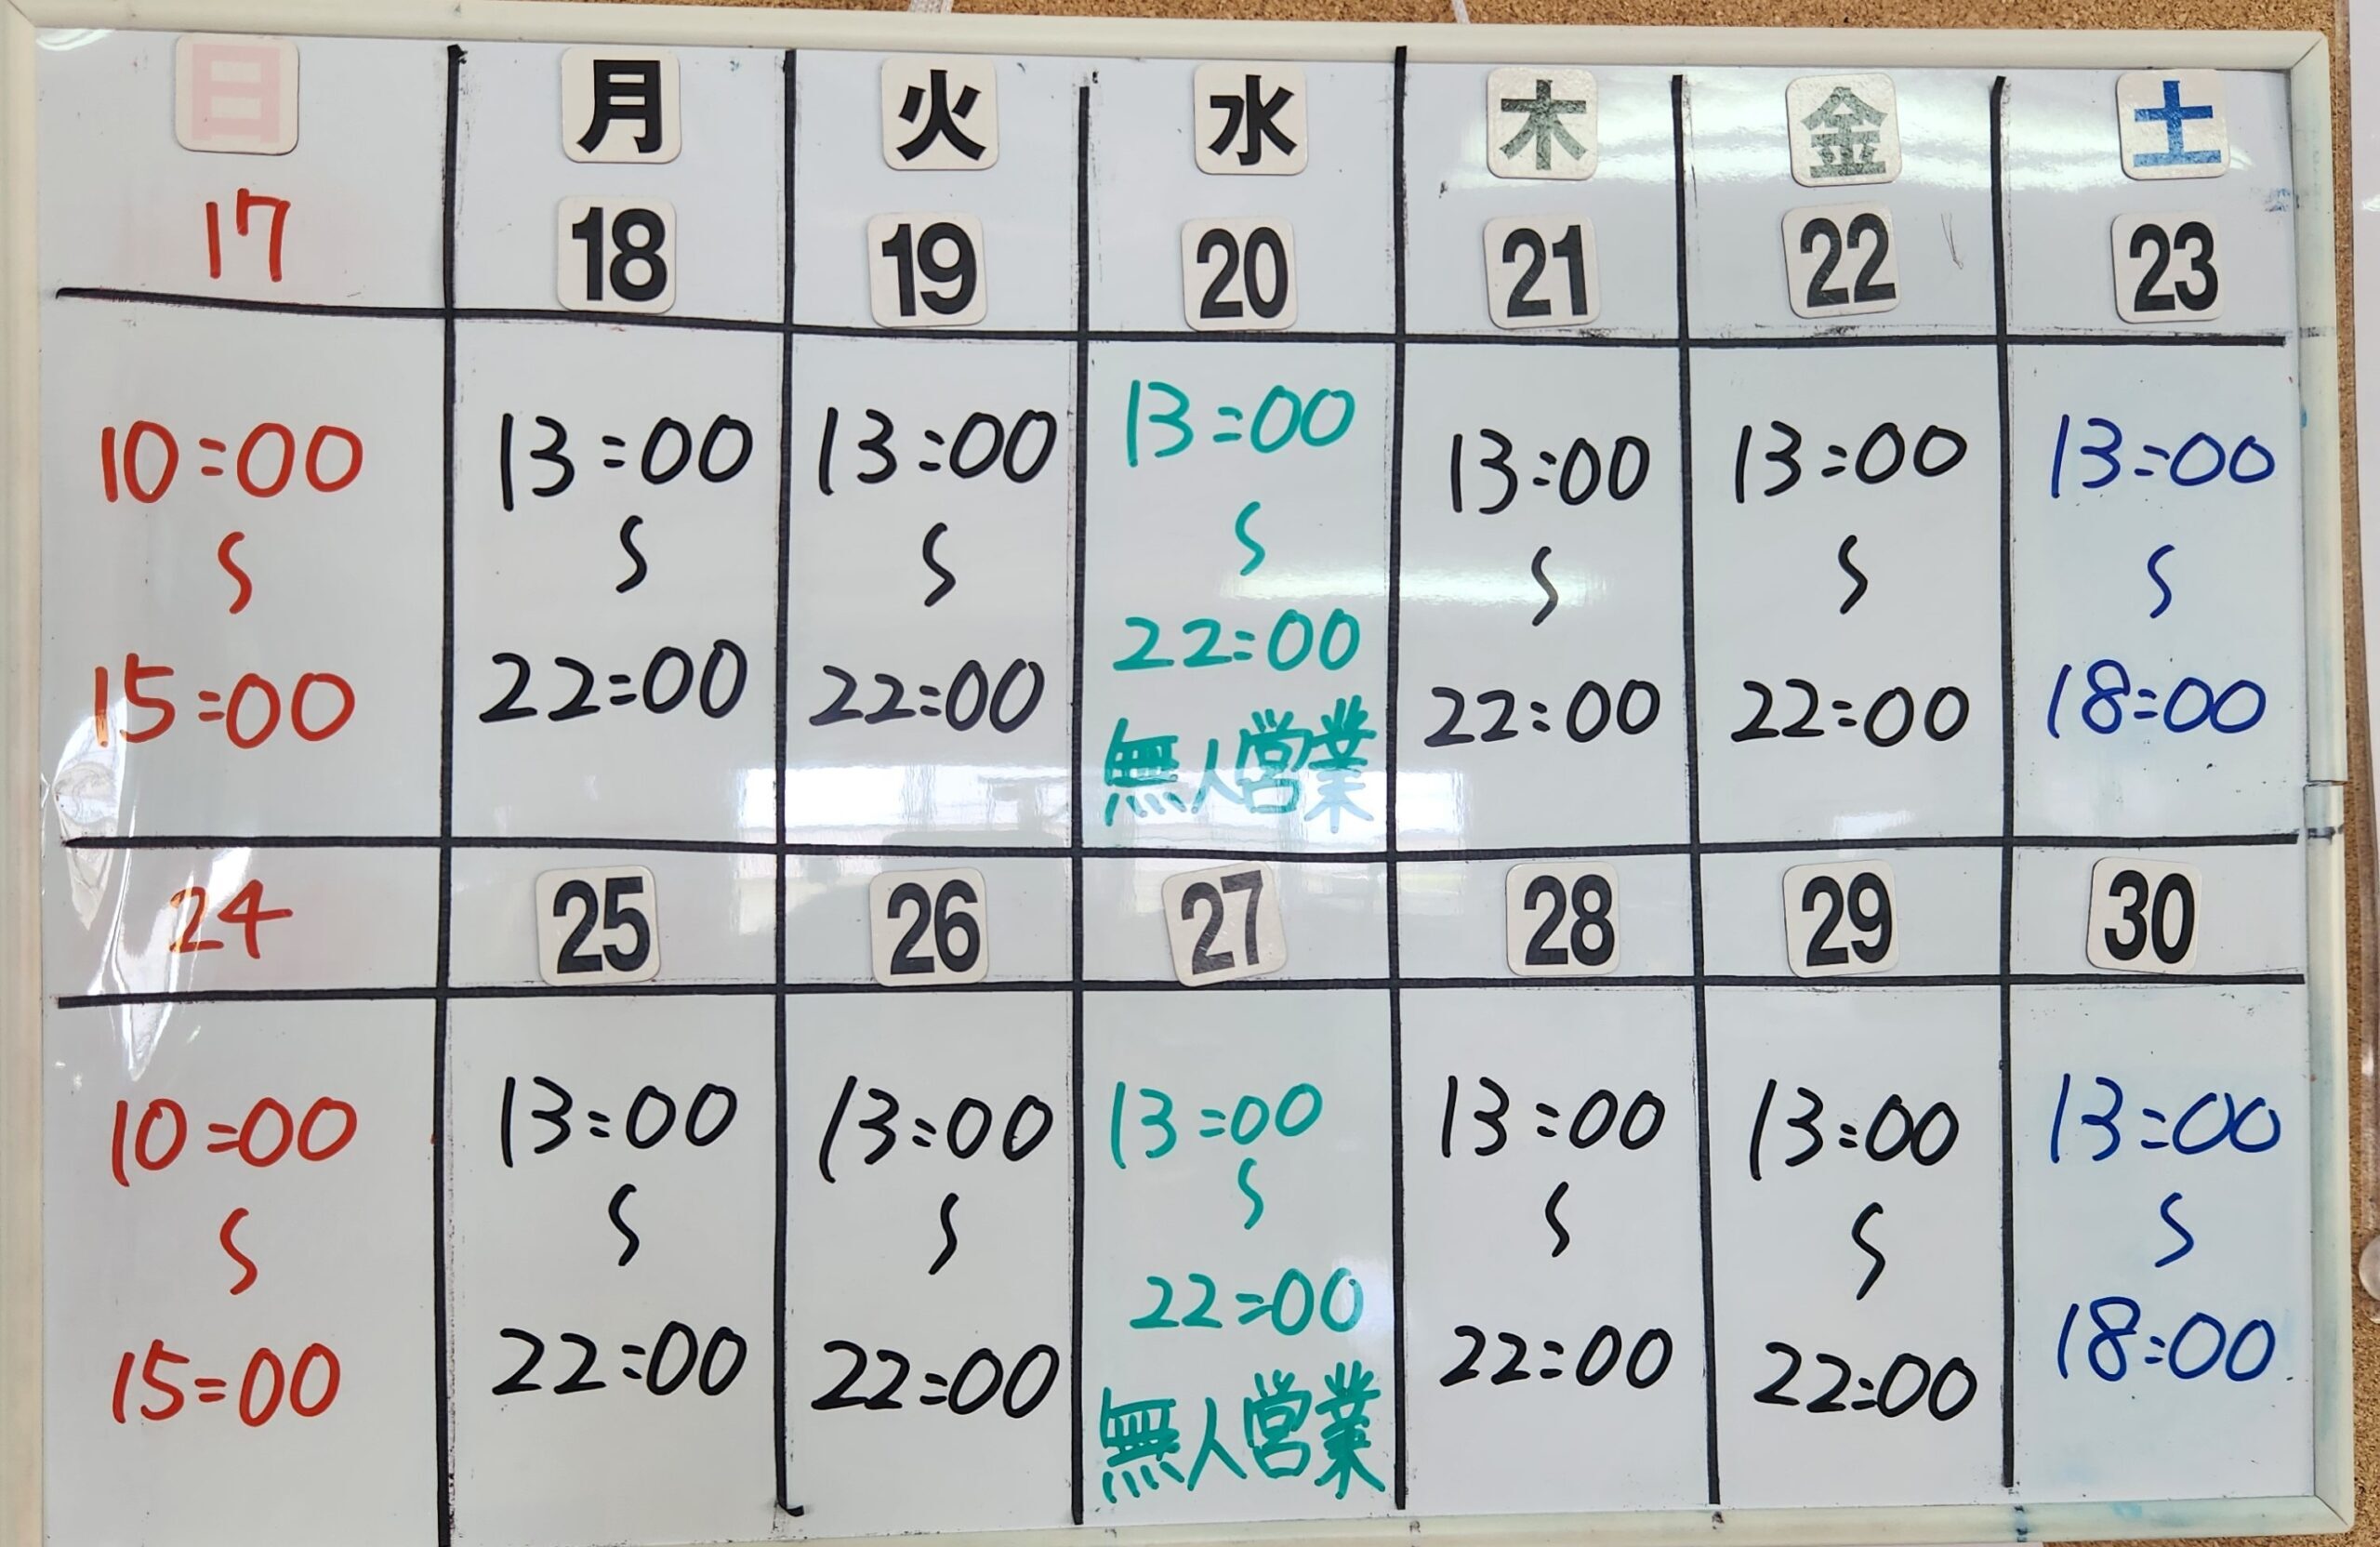 日 月 火 水 木 金 土
17 18 19 20 21 22 23
10:00 13:00 13:00 13:00 13:00 13:00 13:00
〜 〜 〜 〜 〜 〜 〜
15:00 22:00 22:00 22:00 22:00 22:00 18:00
無人営業
24 25 26 27 28 29 30
10:00 13:00 13:00 13:00 13:00 13:00 13:00
〜 〜 〜 〜 〜 〜 〜
15:00 22:00 22:00 22:00 22:00 22:00 18:00
無人営業